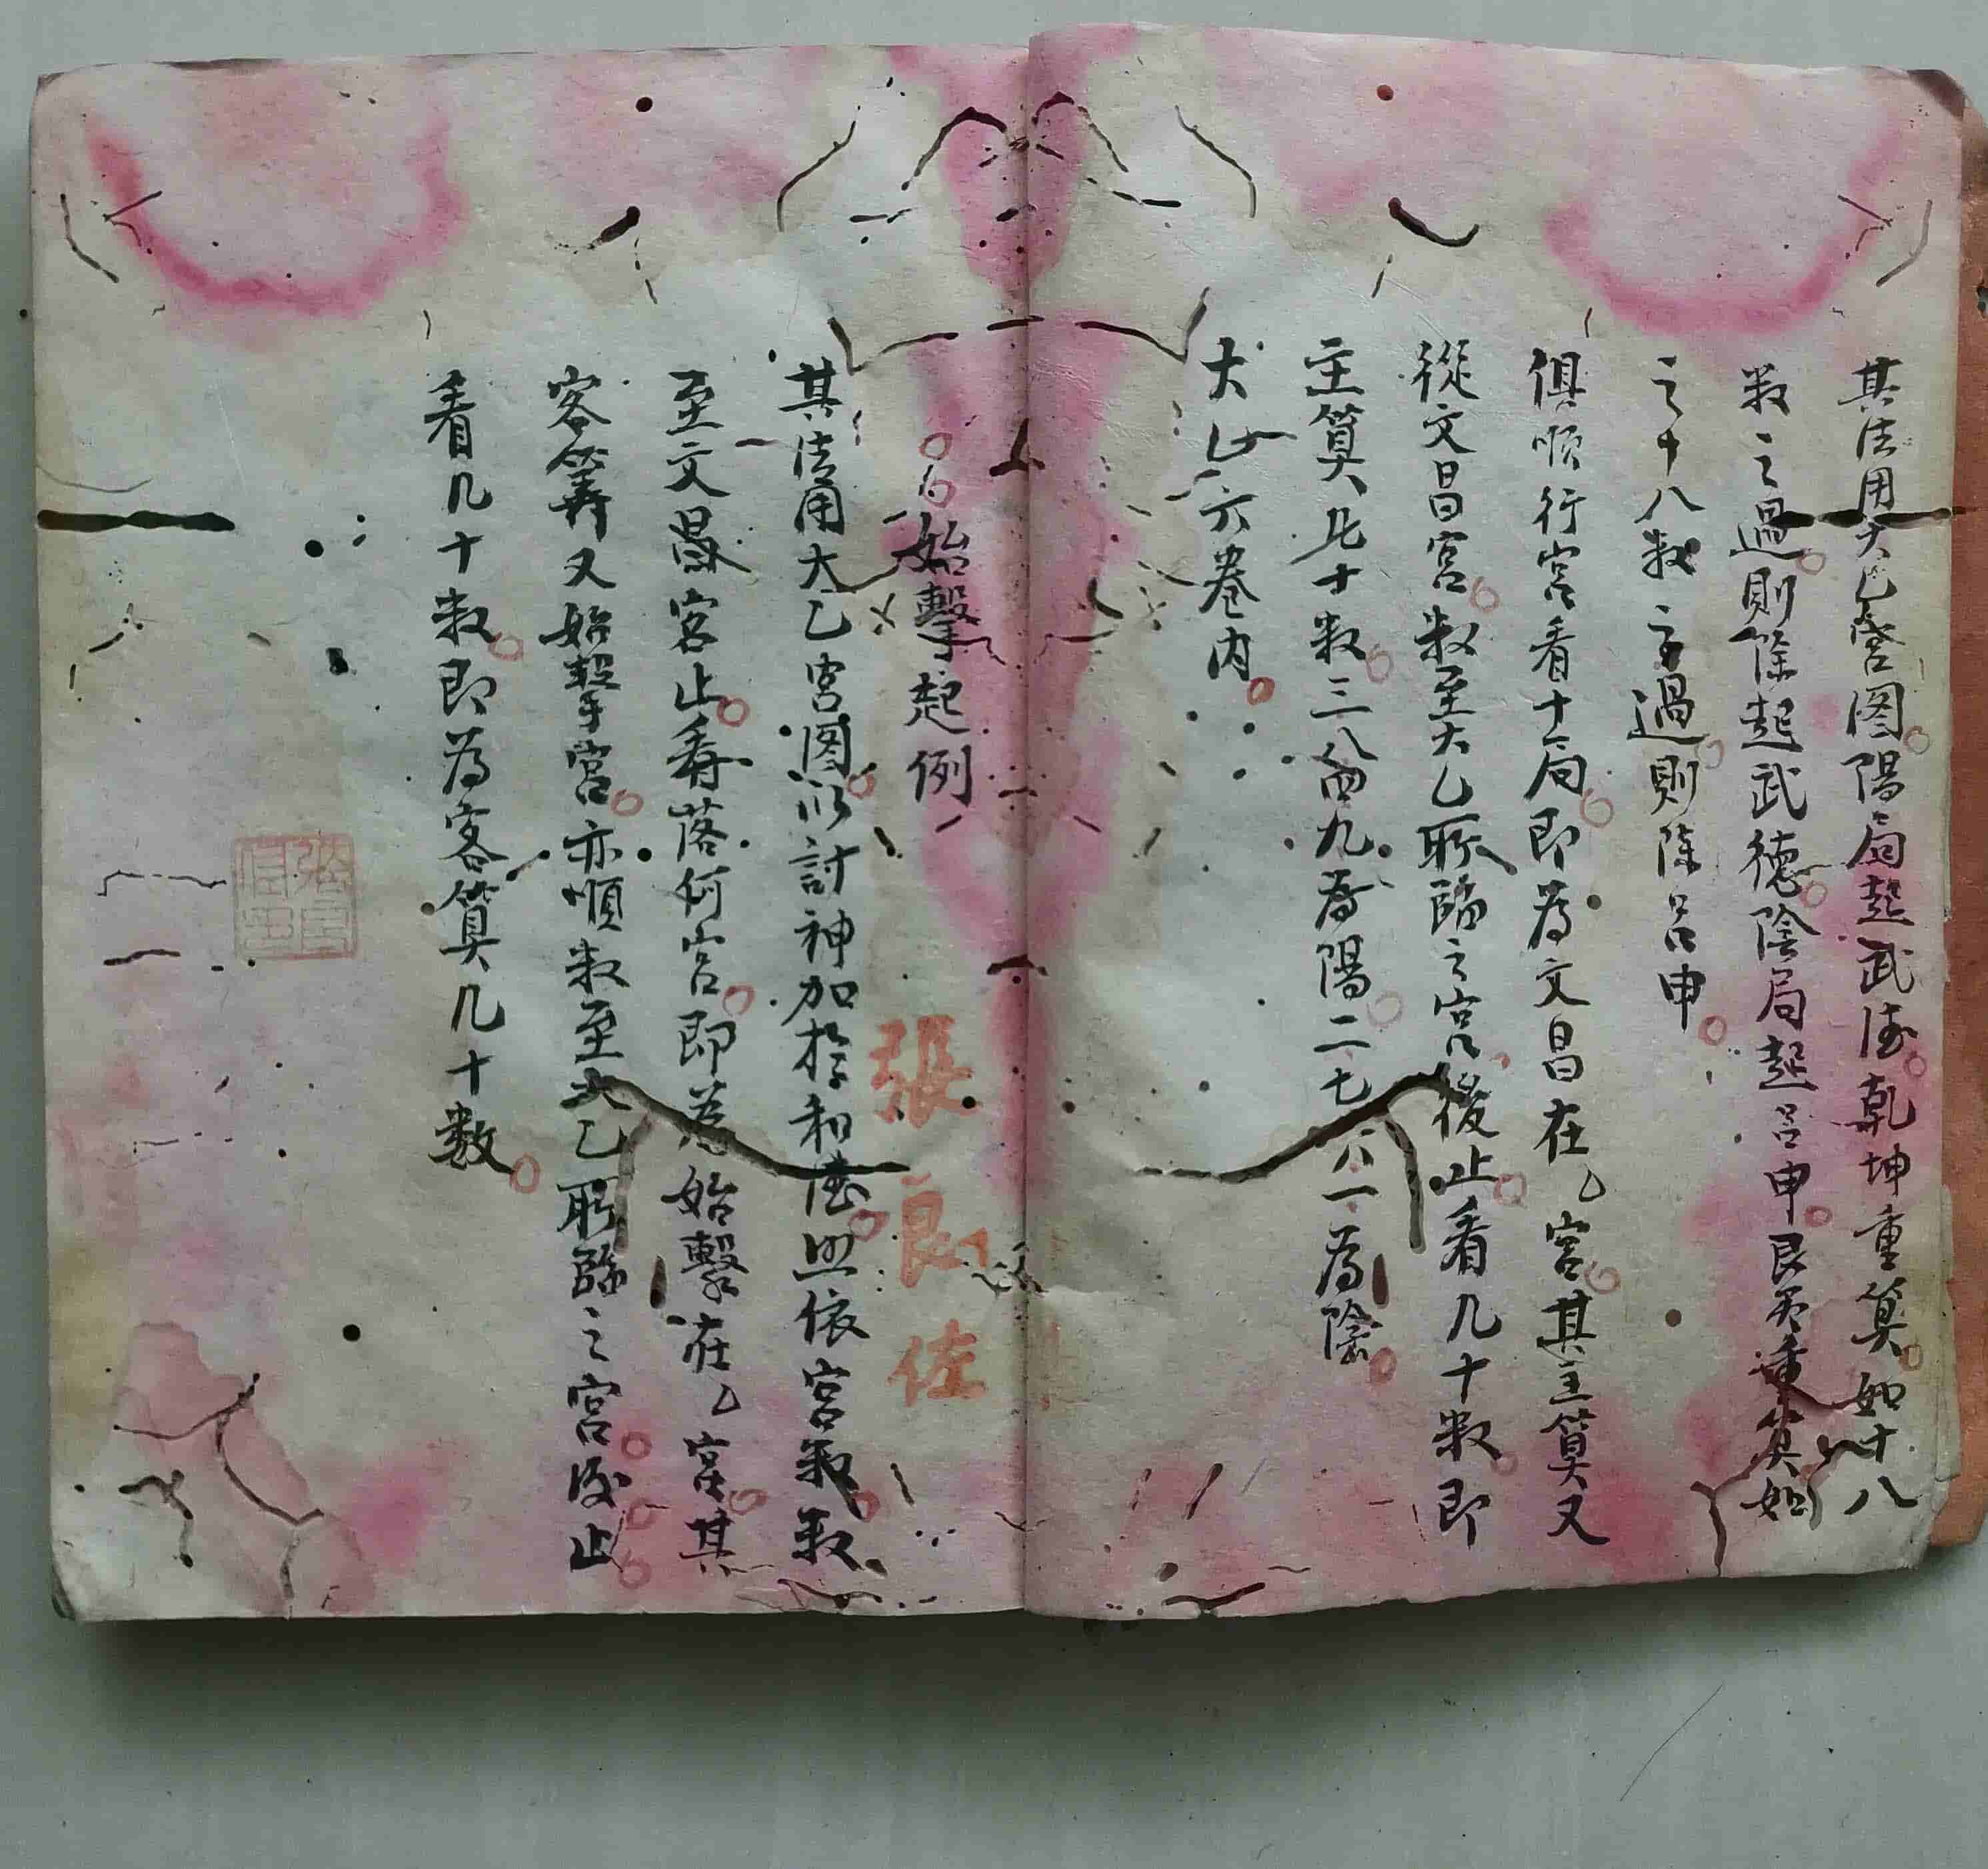 其法用大乙宮图陽局起武德乾坤重算如十八
数之過則除起武德陰局起呂申艮巽重算如
之十八数之過則除呂申
俱順行宮看十二局即為文昌在乙宮其主算又
從文昌宮数至大乙所臨之宮後止看几十数即
主算几十数三八四九為陽二七六一為陰
大乙六卷內
始擊起例
其法用大乙宮图以計神加於和德上依宮数数
至文昌客止看落何宮即為始擊在乙宮其
客算又始擊宮亦順数至大乙所臨之宮後止
看几十数即為客算几十数
張良佐